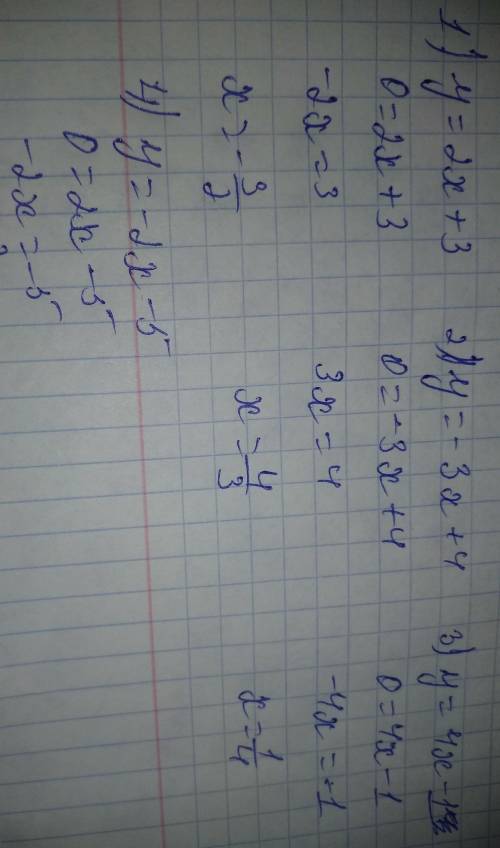 1) y = 2x + 3
0 = 2x + 3
-2x = 3
x = -3/2
2) y = -3x + 4
0 = -3x + 4
3x = 4
x = 4/3
3) y = 4x - 1
0 = 4x - 1
-4x = -1
x = 1/4
4) y = -2x - 5
0 = 2x - 5
-2x = -5